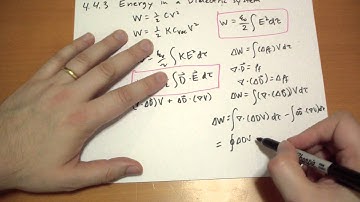 4.4.3 Energy in a Dielectric System
W = ½ CV²
W = ½ K C_vac V²
W = ε₀/2 ∫ E² dτ
ε₀/2 ∫ K E² dτ
½ ∫ D⃗ · E⃗ dτ
ΔD⃗) V + ΔD⃗ · (∇V)
ΔW = ∫ (Δρf) V dτ
∇ · D⃗ = ρf
∇ · (ΔD⃗) = Δρf
ΔW = ∫ (∇ · (ΔD⃗)) V dτ
ΔW = ∫ ∇ · (ΔD V) dτ − ∫ ΔD⃗ · (∇V) dτ
= ∮ ΔD V